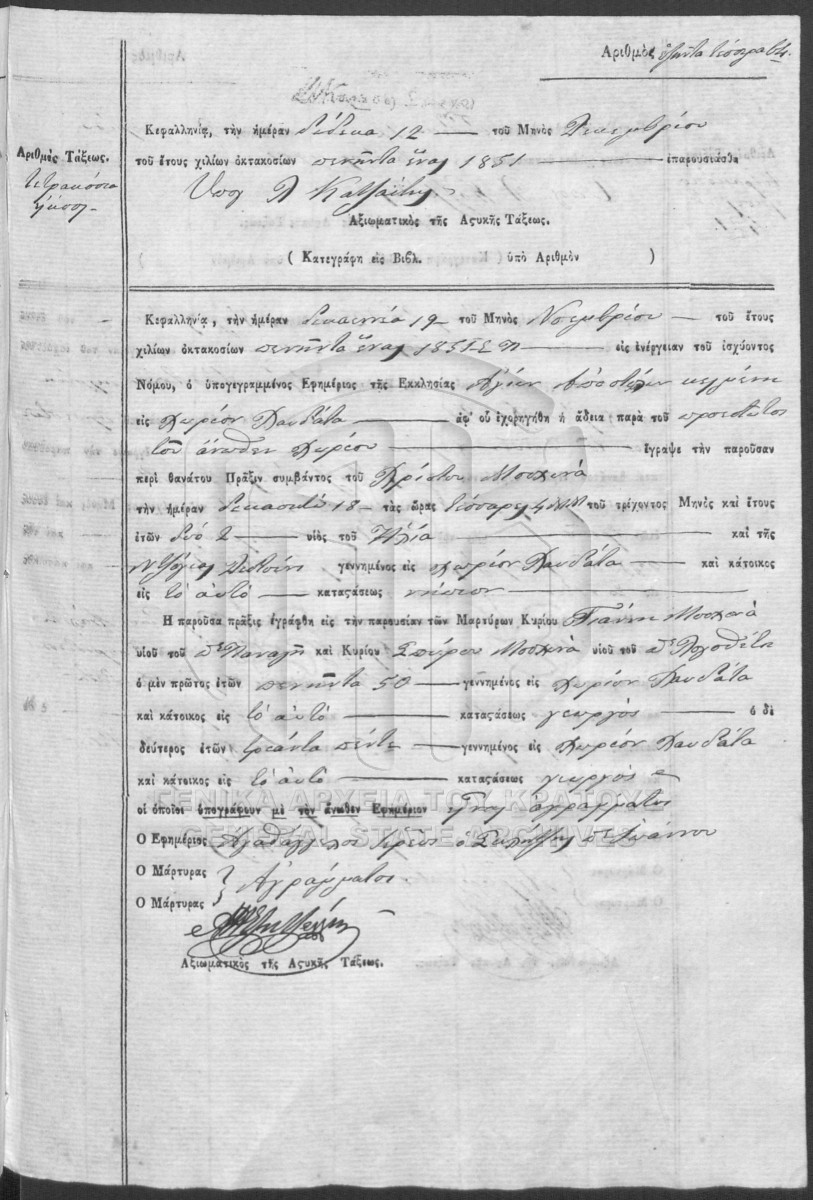 Ἀριθμὸς ὀγδοῆντα τέσσερα 84.
Κεφαλληνίᾳ, τὴν ἡμέραν δόδεκα 12 τοῦ Μηνὸς Δεκεμβρίου
Ἀριθμὸς Τάξεως.
τοῦ ἔτους χιλίων ὀκτακοσίων πενῆντα ἕναν 1851 ἐπαρουσιάσθη
Τετρακόσια
Ἀξιωματικὸς τῆς Ἀςυκῆς Τάξεως.
( Κατεγράφη εἰς Βιβλ. ὑπὸ Ἀριθμὸν )
Κεφαλληνίᾳ, τὴν ἡμέραν δεκαεννιά 19 τοῦ Μηνὸς Νοεμβρίου τοῦ ἔτους
χιλίων ὀκτακοσίων πενῆντα ἕναν 1851 Ε Π εἰς ἐνέργειαν τοῦ ἰσχύοντος
Νόμου, ὁ ὑπογεγραμμένος Ἐφημέριος τῆς Ἐκκλησίας Ἁγίων Ἀποστόλων κειμένη
εἰς χωρίον Δαυδάτα ἀφ' οὗ ἐχορηγήθη ἡ ἄδεια παρὰ τοῦ προεστῶτος
τοῦ ἄνωθεν χωρίου ἔγραψε τὴν παροῦσαν
περὶ θανάτου Πρᾶξιν συμβάντος τοῦ Χρίστου Μοσχονᾶ
τὴν ἡμέραν δεκαοκτώ 18 τὰς ὥρας τέσσαρες 4 ΜΜ τοῦ τρέχοντος Μηνὸς καὶ ἔτους
ἐτῶν δυό 2 υἱὸς τοῦ Ἠλία καὶ τῆς
γεννημένος εἰς χωρίον Δαυδάτα καὶ κάτοικος
εἰς τὸ αὐτό καταςάσεως νήπιον
Ἡ παροῦσα πρᾶξις ἐγράφθη εἰς τὴν παρουσίαν τῶν Μαρτύρων Κυρίου Γιάννη Μοσχονᾶ
υἱοῦ τοῦ π. Παναγῆ καὶ Κυρίου Σπύρου Μοσχονᾶ υἱοῦ τοῦ π. Λογοθέτη
ὁ μὲν πρῶτος ἐτῶν πενῆντα 50 γεννημένος εἰς χωρίον Δαυδάτα
καὶ κάτοικος εἰς τὸ αὐτό καταςάσεως γεωργός ὁ δὲ
δεύτερος ἐτῶν τριάντα πέντε γεννημένος εἰς χωρίον Δαυδάτα
καὶ κάτοικος εἰς τὸ αὐτό καταςάσεως γεωργός
οἱ ὁποῖοι ὑπογράφουν μὲ τὸν ἄνωθεν Ἐφημέριον ἀγράμματοι
Ὁ Ἐφημέριος Ἀγαθάγγελος Ἱερεὺς π. Ἰωάννου
Ὁ Μάρτυρας } Ἀγράμματοι
Ὁ Μάρτυρας
Ἀξιωματικὸς τῆς Ἀςυκῆς Τάξεως.
ΓΕΝΙΚΑ ΑΡΧΕΙΑ ΤΟΥ ΚΡΑΤΟΥΣ
GENERAL STATE ARCHIVES